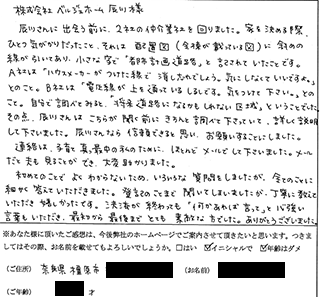 株式会社 ベルジュホーム 辰川様
辰川さんに出会う前に、2社の仲介業社を回りました。家を決める際、
ひとつ気がかりだったこと、それは 配置図(全体が載っている図)に 斜めの
線が引いてあり、小さな字で "都市計画道路" と記されていたことです。
A社は「ハウスメーカーがつけた線で 消し忘れでしょう。気にしなくていいですよ。」
とのこと。B社は「電圧線が上を通っているしるしです。気をつけて下さい。」との
こと。自分で調べてみると、将来道路になるかもしれない区域、ということでした。
その点、辰川さんは こちらが聞く前に きちんと調べて下さっていて、詳しく説明
して下さいました。辰川さんなら 信頼できると思い、お願いすることにしました。
連絡は、子育て真最中の私のために、ほとんど メールで して下さいました。メール
だと 夫も 見ることができ、大変助かりました。
初めてのことで よくわからないため、いろいろな 質問をしましたが、全てのことに
細かく 答えていただきました。 のことまで 聞いてしまいましたが、丁寧に教えて
いただき 嬉しかったです。決済が終わっても「何かあれば言って」と心強い
言葉もいただき、最初から 最後まで とても 素敵な方でした。ありがとうございました。
※あなた様に頂いたご感想は、今後弊社のホームページでご案内させて頂きたいと思います。つきま
してはその際、お名前を載せてもよろしいでしょうか。□はい ☑イニシャルで ☑年齢はダメ
(ご住所) 奈良県 橿原市 (お名前)
(ご年齢) 才